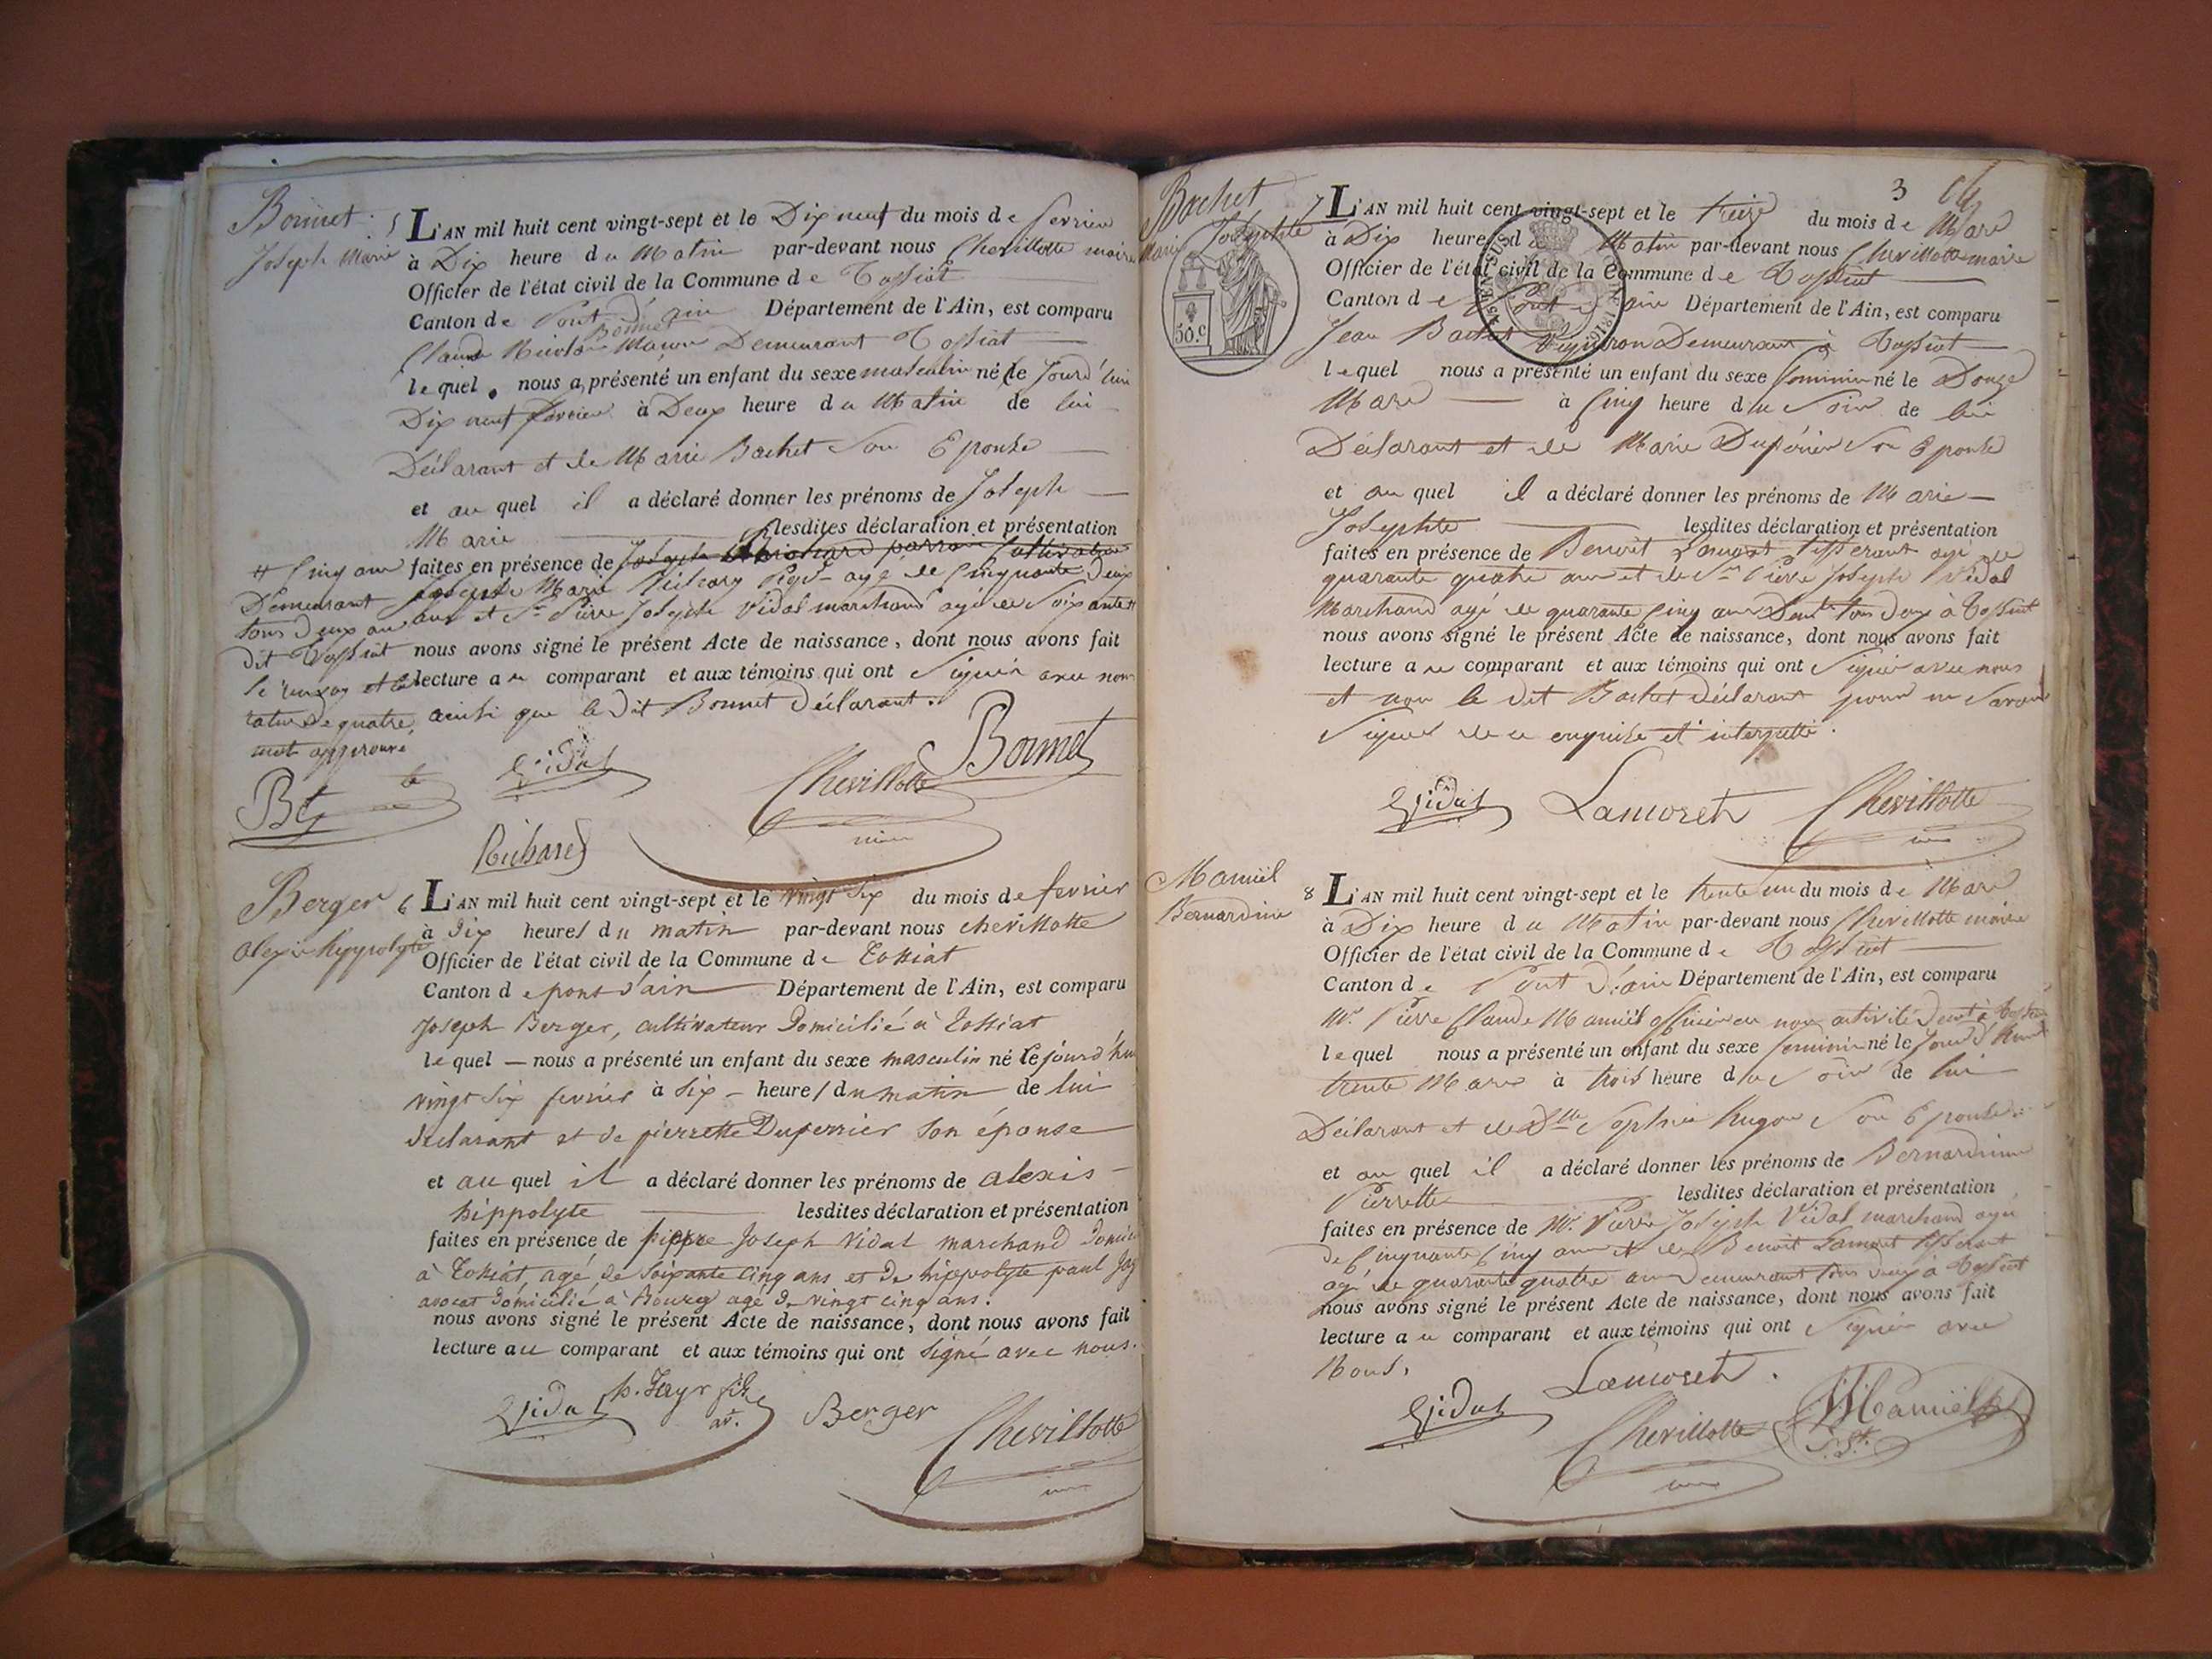 Bonnet
Joseph Marie
5 L'AN mil huit cent vingt-sept et le Dix neuf du mois de fevrier
à Dix heure du Matin par-devant nous Chevillotte maire
Officier de l'état civil de la Commune de Tossiat
Canton de Pont d'ain Département de l'Ain, est comparu
Bonnet
Claude Nicolas Maçon Demeurant Tossiat
lequel nous a présenté un enfant du sexe masculin né le Jourd'hui
Dix neuf fevrier à Deux heure du Matin de lui
Déclarant et de Marie Bachet Son Epouse
et au quel il a déclaré donner les prénoms de Joseph
Marie lesdites déclaration et présentation
faites en présence de Joseph
Joseph Marie agé de Cinquante Deux
ans et Sr Pierre Joseph Vidal marchand agé de Soixante #
# Cinq ans
Demeurant
tous Deux au
dit Tossiat
le renvoy et la
rature de quatre
mot approuvé
nous avons signé le présent Acte de naissance, dont nous avons fait
lecture au comparant et aux témoins qui ont Signés avec nous
ainsi que le Dit Bonnet Déclarant.
Bt
Vidal
Chevillotte
Bonnet
Richard
Berger
alexis hyppolyte
6 L'AN mil huit cent vingt-sept et le vingt Six du mois de fevrier
à dix heures du matin par-devant nous chevillotte
Officier de l'état civil de la Commune de Tossiat
Canton de pont d'ain Département de l'Ain, est comparu
Joseph Berger, cultivateur Domicilié à Tossiat
lequel nous a présenté un enfant du sexe masculin né le jourd'hui
vingt six fevrier à six heures du matin de lui
declarant et de pierrette Duperrier Son épouse
et au quel il a déclaré donner les prénoms de alexis
hippolyte lesdites déclaration et présentation
faites en présence de pierre Joseph Vidal marchand Domicilié
à Tossiat, agé de Soixante cinq ans et De hippolyte paul
avocat domicilié à Bourg agé De vingt cinq ans.
nous avons signé le présent Acte de naissance, dont nous avons fait
lecture au comparant et aux témoins qui ont Signé avec nous.
Vidal
h. Jayr fils
av.
Berger
Chevillotte
Bachet
Marie Josephte
50.c
3
7 L'AN mil huit cent vingt-sept et le treize du mois de Mars
à Dix heure du Matin par-devant nous Chevillotte maire
Officier de l'état civil de la Commune de Tossiat
Canton de Pont d'ain Département de l'Ain, est comparu
Jean Bachet Vigneron Demeurant à Tossiat
lequel nous a présenté un enfant du sexe feminin né le Douze
Mars à Cinq heure du Soir de lui
Déclarant et de Marie Dupérier Son Epouse
et au quel il a déclaré donner les prénoms de Marie
Josephte lesdites déclaration et présentation
faites en présence de Benoit Lamoret tisserant agé de
quarante quatre ans et de Sr Pierre Joseph Vidal
Marchand agé de quarante Cinq ans Demt tous Deux à Tossiat
nous avons signé le présent Acte de naissance, dont nous avons fait
lecture au comparant et aux témoins qui ont Signés avec nous
et non le dit Bachet déclarant pour ne Savoir
Signer de ce enquise et interpellé.
Vidal
Lamoret
Chevillotte
Mamiel
Bernardine
8 L'AN mil huit cent vingt-sept et le trente un du mois de Mars
à Dix heure du Matin par-devant nous Chevillotte maire
Officier de l'état civil de la Commune de Tossiat
Canton de Pont D'ain Département de l'Ain, est comparu
Mr Pierre Claude Mamiel officier en non activité Demt à Tossiat
lequel nous a présenté un enfant du sexe feminin né le Jourd'huit
trente Mars à trois heure du Soir de lui
Déclarant et de Dlle Sophie hugon Son Epouse
et au quel il a déclaré donner les prénoms de Bernardine
Pierrette lesdites déclaration et présentation
faites en présence de Mr Pierre Joseph Vidal marchand agé
de Cinquante Cinq ans et de Benoit Lamoret tisserant
agé de quarante quatre ans Demeurant tous deux à Tossiat
nous avons signé le présent Acte de naissance, dont nous avons fait
lecture au comparant et aux témoins qui ont Signés avec
Nous.
Vidal
Lamoret.
Chevillotte
Mamiel